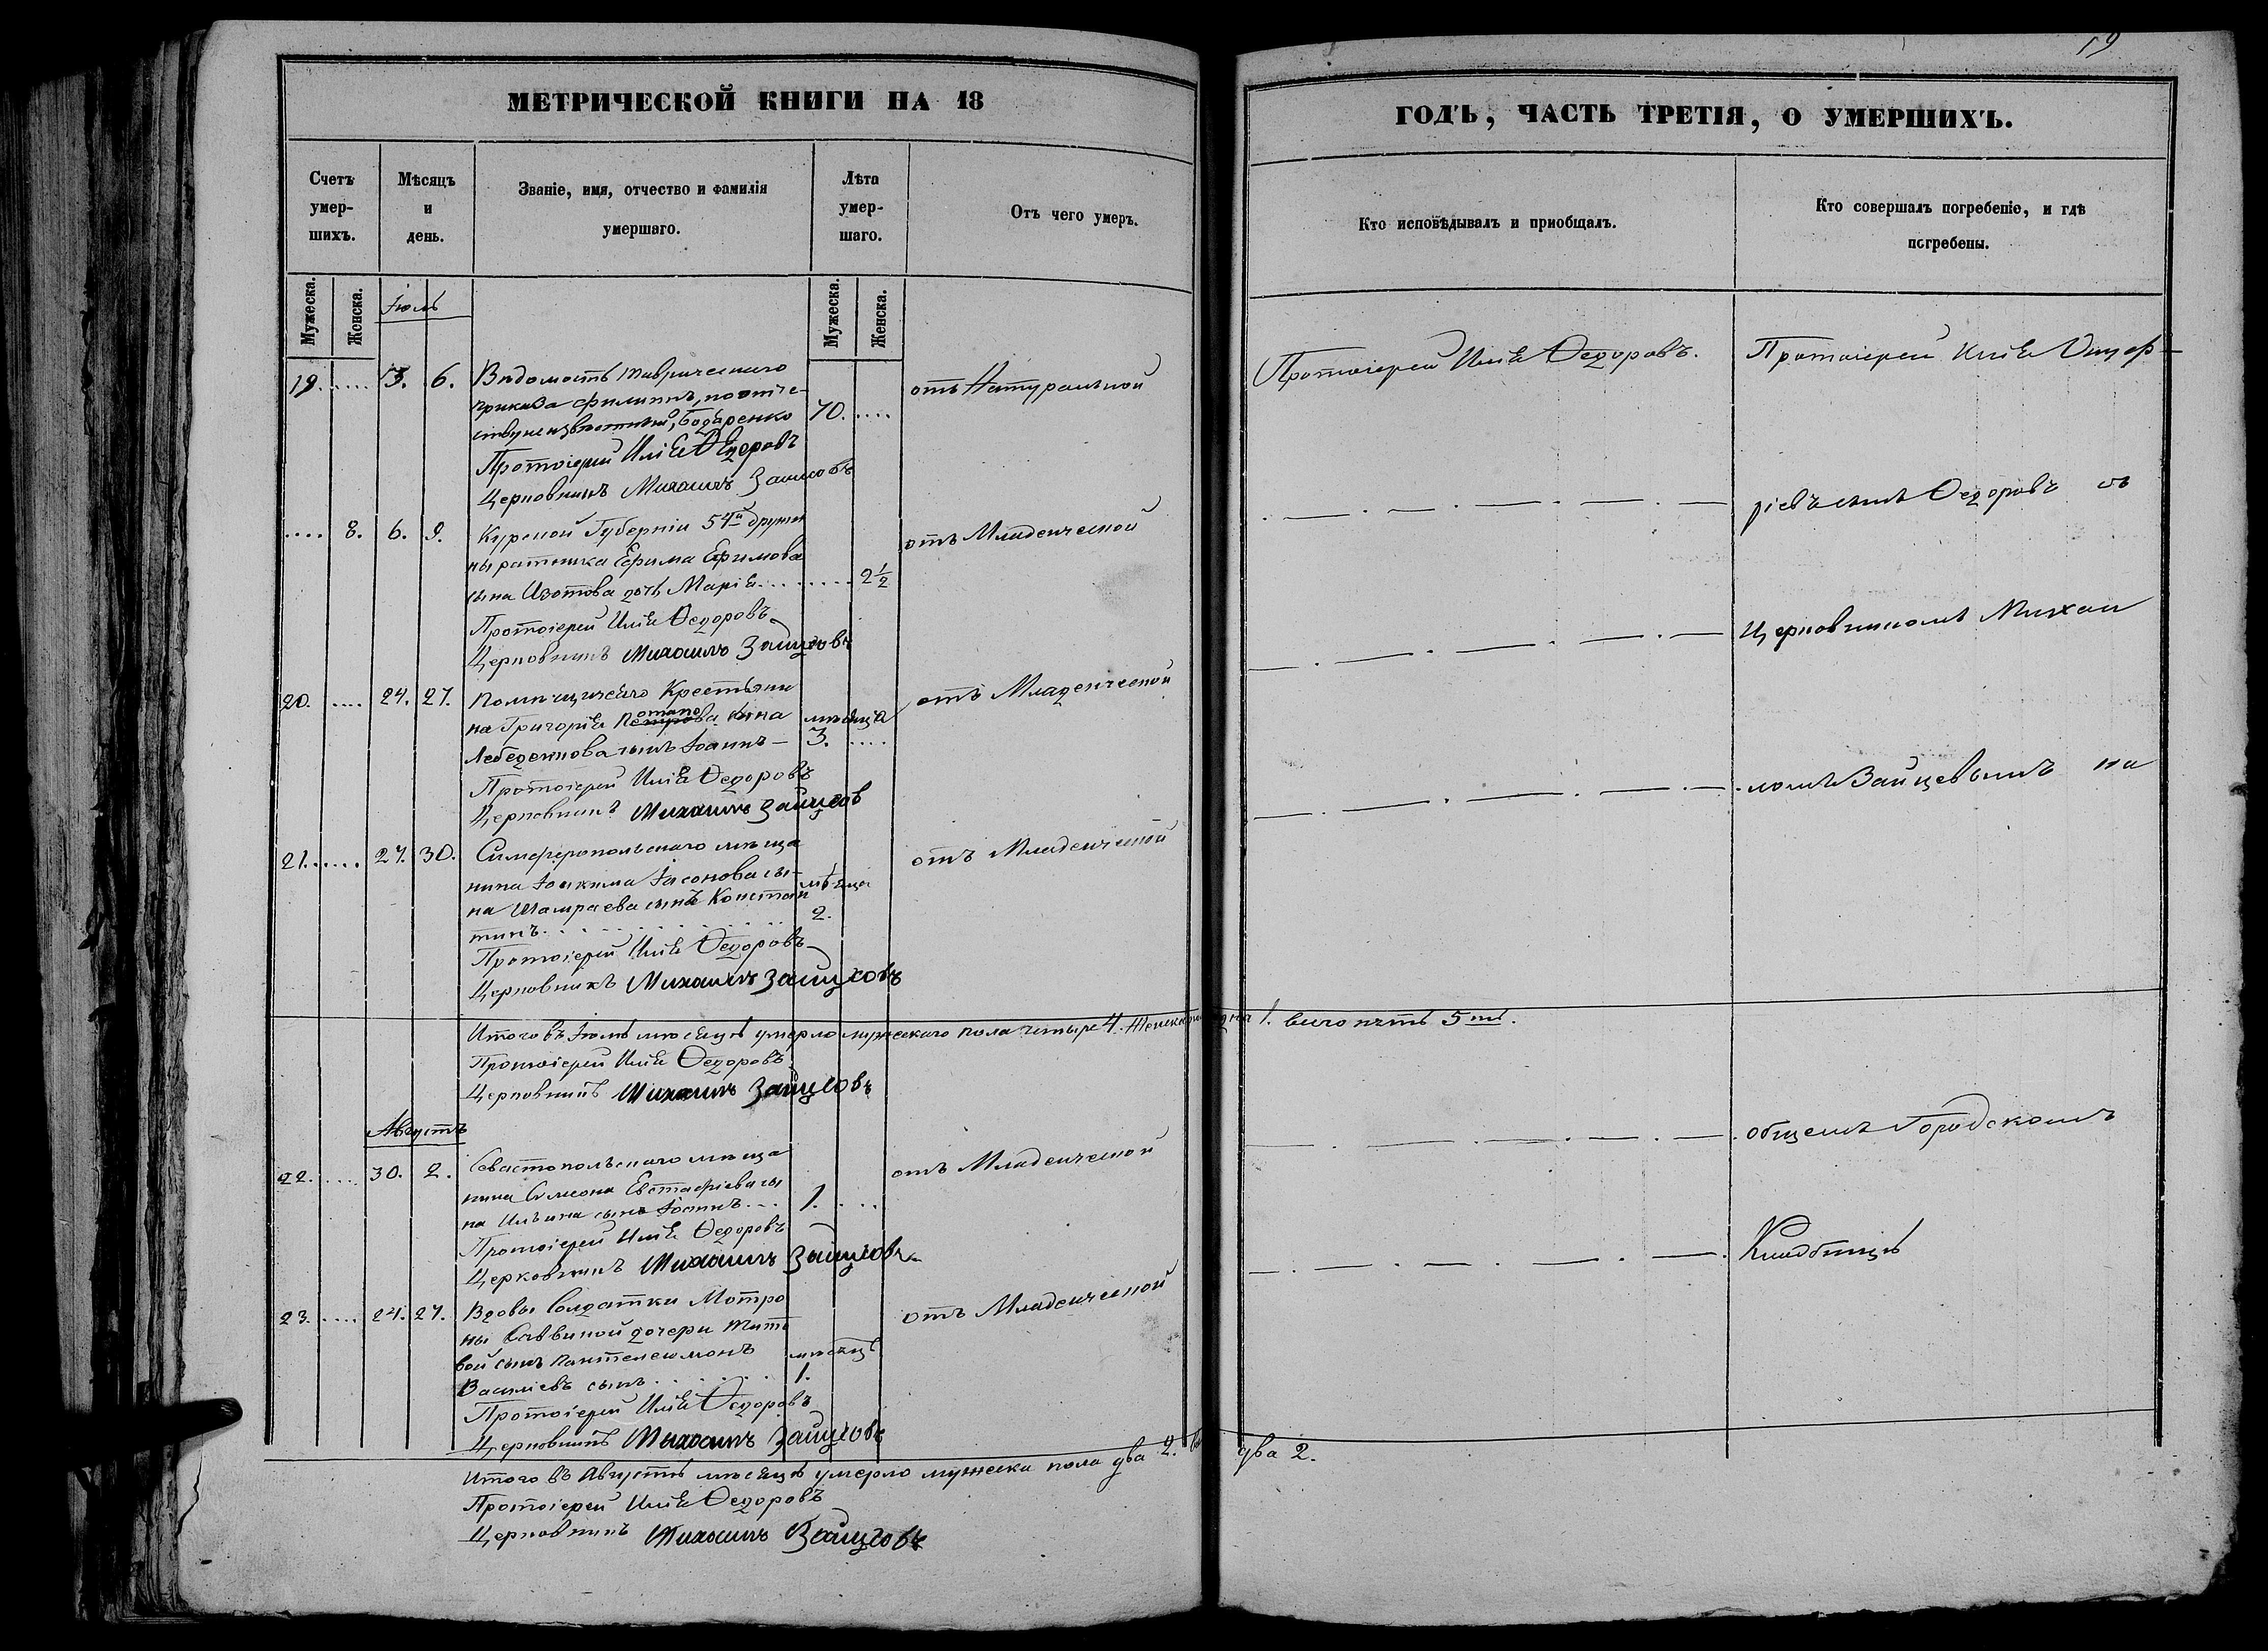 19
МЕТРИЧЕСКОЙ КНИГИ НА 18
ГОДЪ, ЧАСТЬ ТРЕТІЯ, О УМЕРШИХЪ.
Счетъ умер-шихъ.
Мѣсяцъ и день.
Званіе, имя, отчество и фамилія умершаго.
Лѣта умер-шаго.
Отъ чего умеръ.
Кто исповѣдывалъ и приобщалъ.
Кто совершалъ погребеніе, и гдѣ погребены.
Мужеска. Женска.
Мужеска. Женска.
Іюль
19. .... 3. 6. Вѣдомостѣ таврическаго
приказа Филиппъ, по отче-
ству неизвѣстный, Бодаренко 70. ....
отъ Натуральной
Протоіерей Илія Ѳедоровъ.
Протоіерей Илія Онуф-
Протоіерей Илія Ѳедоровъ
Церковникъ Михаилъ Зайцовъ
.... 8. 6. 9. Курской Губерніи 54й дружи
ны ратника Ефима Ефимова
сына Изотова дочь Марія ........ 2½
отъ Младенческой
ріевъ сынъ Ѳедоровъ съ
Протоіерей Илія Ѳедоровъ
Церковникъ Михаилъ Зайцовъ
Церковникомъ Михаи
20. .... 24. 27. Помѣщичьяго Крестьяни
на Григорія Потапова сына
Лебеденкова сынъ Іоаннъ —
мѣсяца
3. ....
отъ Младенческой
Протоіерей Илія Ѳедоровъ
Церковникъ Михаилъ Зайцов
ломъ Зайцевымъ на
21. .... 27. 30. Симферопольскаго мѣща
нина Іоакима Іасонова сы-
на Шамраева сынъ Констан
тинъ. . . .
мѣсяца
2.
отъ Младенческой
Протоіерей Илія Ѳедоровъ
Церковникъ Михаилъ Зайцховъ
Итого въ Іюлѣ мѣсяцѣ умерло мужескаго пола четыре 4. Женска одна 1. всего пять 5ть.
Протоіерей Илія Ѳедоровъ
Церковникъ Михаилъ Зайцовъ
Августъ
22. .... 30. 2. Севастопольскаго мѣща
нина Симеона Евстафіева сы
на Ильина сынъ Іоаннъ. . . 1. ...
отъ Младенческой
общемъ Городскомъ
Протоіерей Илія Ѳедоровъ
Церковникъ Михаилъ Зайцовъ
Кладбищѣ
23. .... 24. 27. Вдовы Солдатки Мотро
ны Саввиной дочери Тито
вой сынъ Пантелеимонъ
Василіевъ сынъ. . . .
мѣсяцъ
1.
отъ Младенческой
Протоіерей Илія Ѳедоровъ
Церковникъ Михаилъ Зайцовъ
Итого въ Августѣ мѣсяцѣ умерло мужеска пола два 2. два 2.
Протоіерей Илія Ѳедоровъ
Церковникъ Михаилъ Зайцовъ